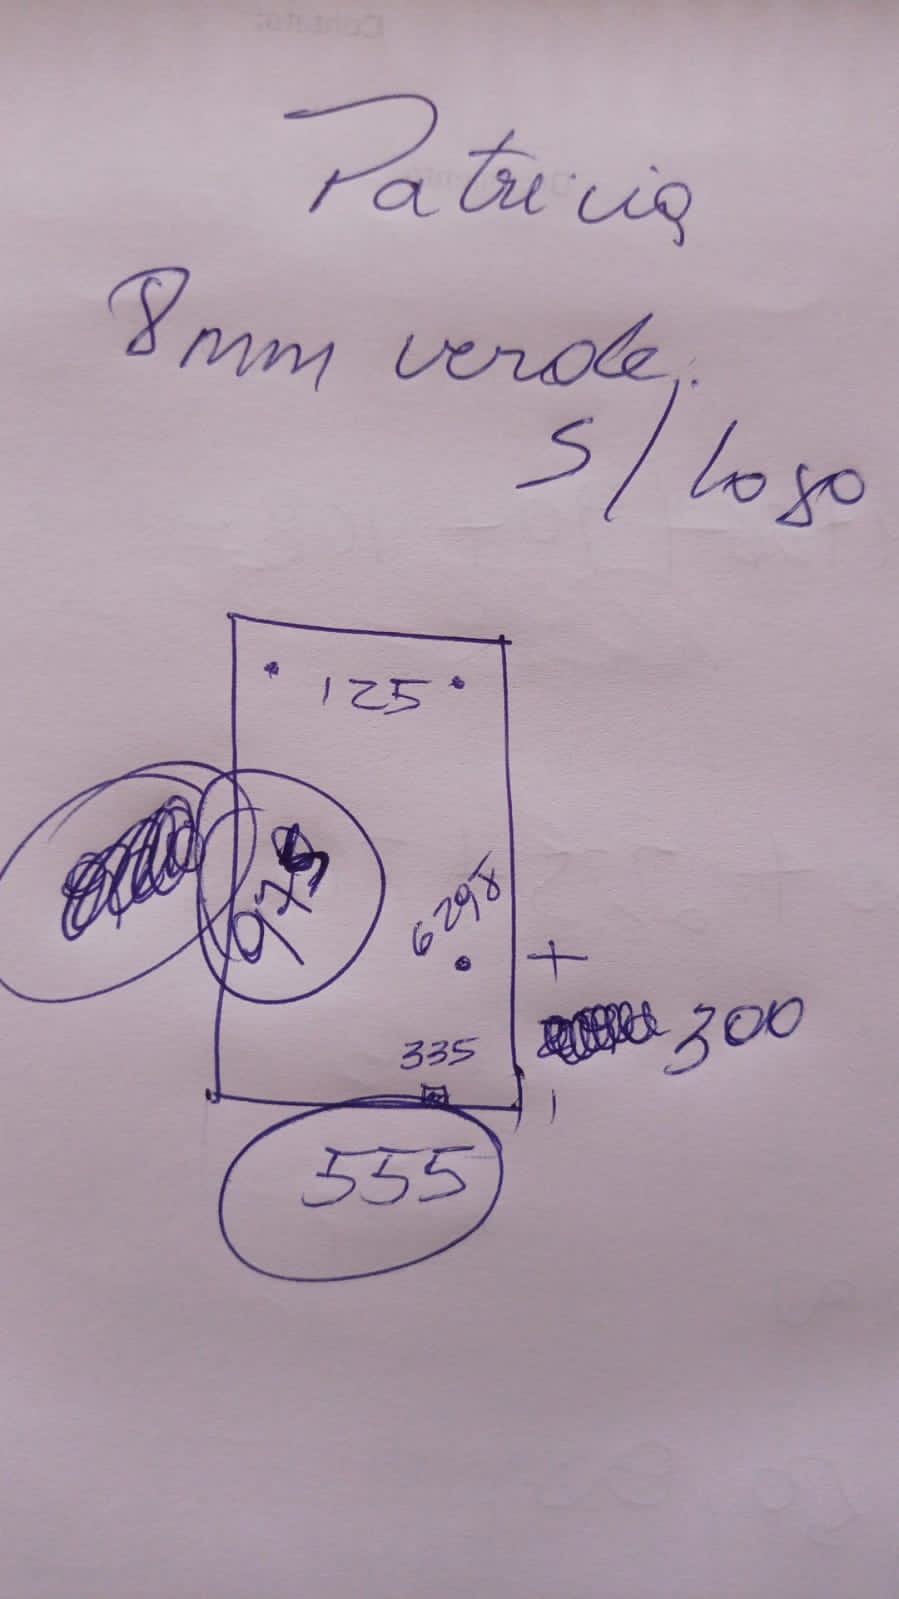 Patricia
8mm verde.
S/ Logo
125
975
6298
+
300
335
555